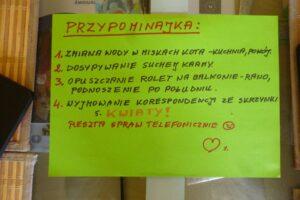 PRZYPOMINAJKA:
1. ZMIANA WODY W MISKACH KOTA - KUCHNIA, POKÓJ.
2. DOSYPYWANIE SUCHEJ KARMY.
3. OPUSZCZANIE ROLET NA BALKONIE - RANO,
PODNOSZENIE PO POŁUDNIU.
4. WYJMOWANIE KORESPONDENCJI ZE SKRZYNKI
5. KWIATY!
RESZTA SPRAW TELEFONICZNIE